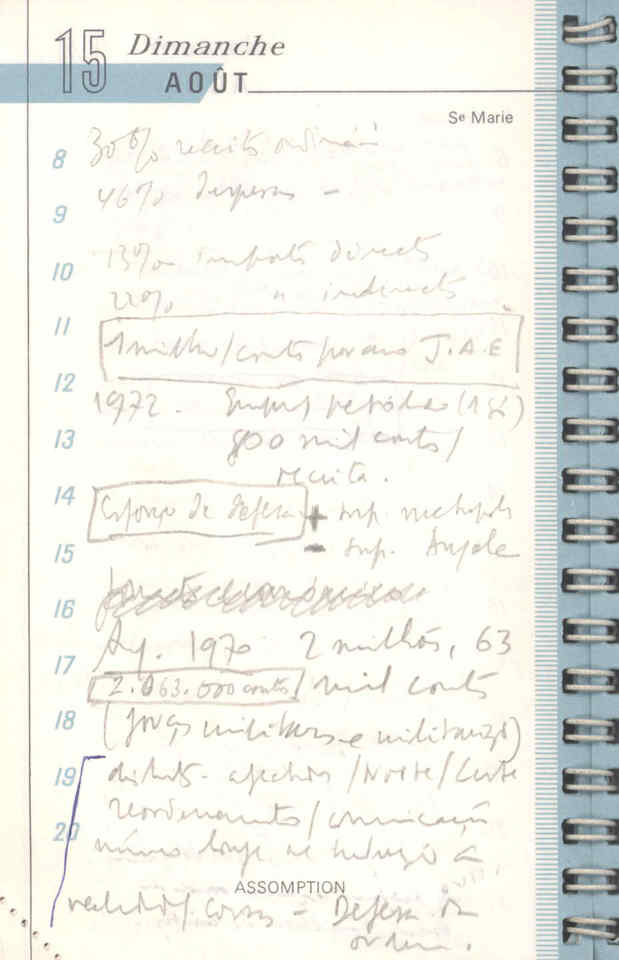 15 Dimanche
AOÛT
Se Marie
8 30% receits
9 46% Despesas –
10 13% impostos directs
22% " indirects
11 1 milhão/contos por ano J.A.E
12 1972. petróleo
13 800 mil contos/
receita.
14 Esforço de defesa + imp. metropole
15 – imp. Angola
16
Ag. 1970 2 milhões, 63
17 2.063.000 contos / mil contos
18 (forças militares e militarizº)
19 distrits. afectados / Norte / Leste
reordenamentos / comunicação
20 número longe se
ASSOMPTION
Defesa da
ordem.